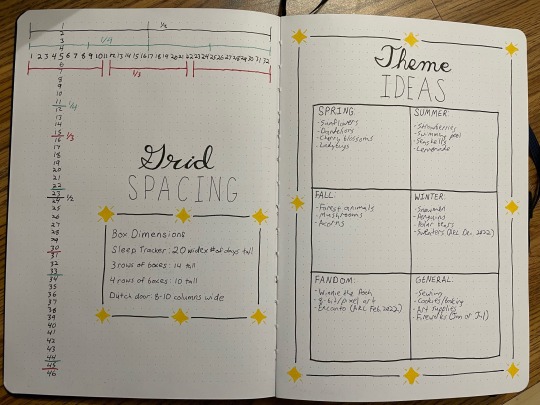 1/2
1/4
1 2 3 4 5 6 7 8 9 10 11 12 13 14 15 16 17 18 19 20 21 22 23 24 25 26 27 28 29 30 31 32
1/3
1
2
3
4
5
6
7
8
9
10
11
12 1/4
13
14
15 1/3
16
17
18
19
20
21
22
23 1/2
24
25
26
27
28
29
30
31
32
33
34
35
36
37
38
39
40
41
42
43
44
45
46
Grid
SPACING
Box Dimensions
Sleep Tracker: 20 wide x # of days tall
3 rows of boxes: 14 tall
4 rows of boxes: 10 tall
Dutch door: 8-10 columns wide
Theme
IDEAS
SPRING:
- Sunflowers
- Dandelions
- Cherry blossoms
- Ladybugs
SUMMER:
- Strawberries
- Swimming pool
- Seashells
- Lemonade
FALL:
- Forest animals
- Mushrooms
- Acorns
WINTER:
- Snowmen
- Penguins
- Polar bears
- Sweaters (ARC Dec. 2022)
FANDOM:
- Winnie the Pooh
- 8-bit/pixel art
- Encanto (ARC Feb. 2022)
GENERAL:
- Sewing
- Cooking/baking
- Art supplies
- Fireworks (Jan or Jul)